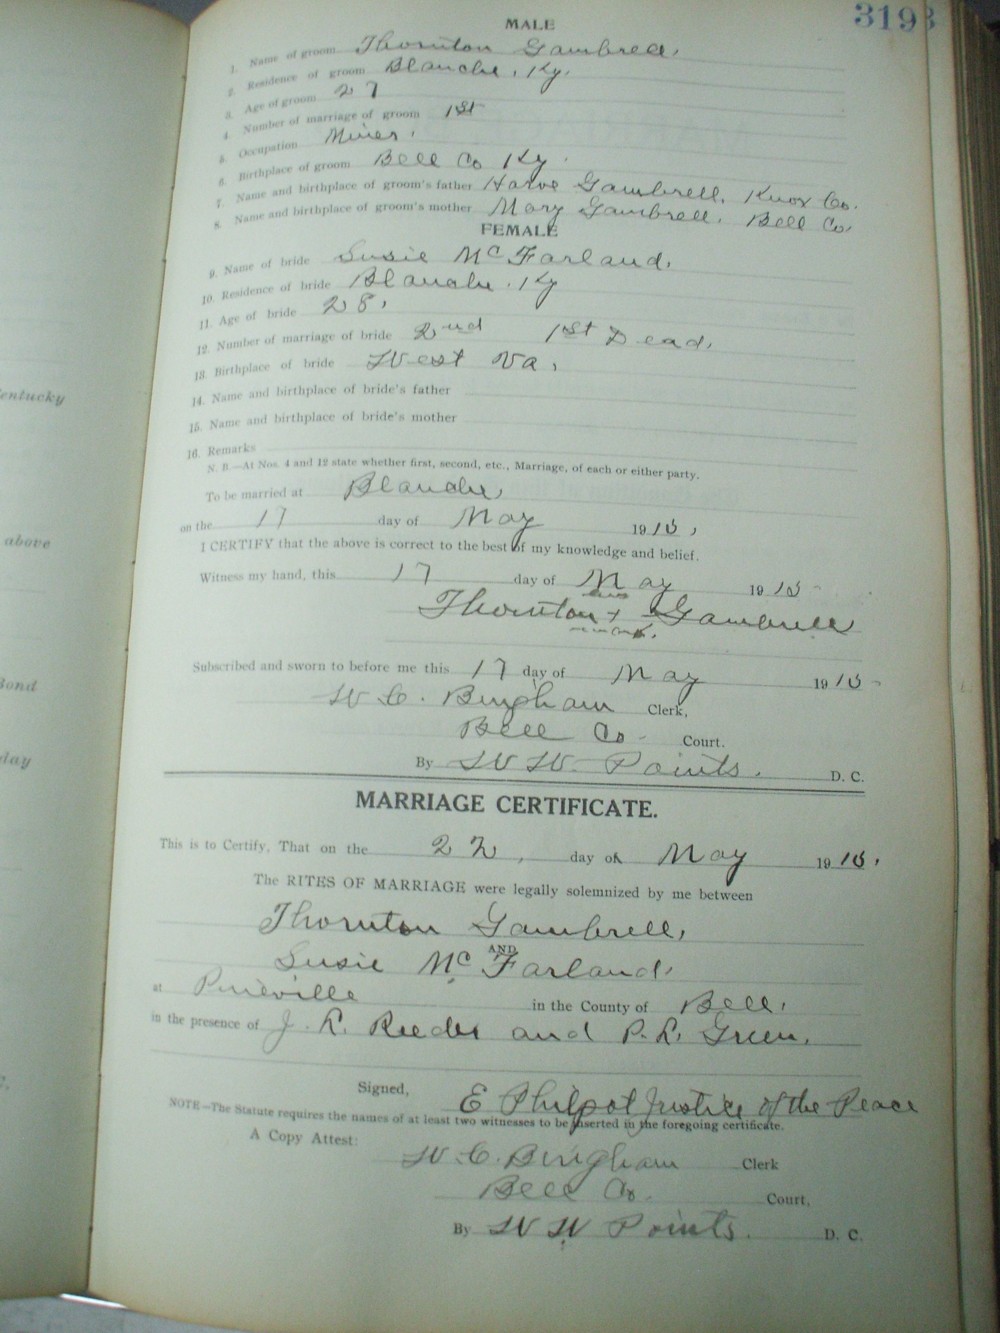 3193
MALE
1. Name of groom Thornton Gambrell,
2. Residence of groom Blanche, Ky.
3. Age of groom 27
4. Number of marriage of groom 1st
5. Occupation Miner,
6. Birthplace of groom Bell Co Ky.
7. Name and birthplace of groom's father Harve Gambrell, Knox Co.
8. Name and birthplace of groom's mother Mary Gambrell, Bell Co,
FEMALE
9. Name of bride Susie McFarland,
10. Residence of bride Blanche, Ky
11. Age of bride 28,
12. Number of marriage of bride 2nd 1st Dead,
13. Birthplace of bride West Va,
14. Name and birthplace of bride's father
15. Name and birthplace of bride's mother
16. Remarks
N. B.—At Nos. 4 and 12 state whether first, second, etc., Marriage, of each or either party.
To be married at Blanche,
on the 17 day of May 19
I CERTIFY that the above is correct to the best of my knowledge and belief.
Witness my hand, this 17 day of May 19
his
Thornton + Gambrell
mark.
Subscribed and sworn to before me this 17 day of May 19
W C. Bingham Clerk,
Bell Co. Court.
By W W. Points. D. C.
MARRIAGE CERTIFICATE.
This is to Certify, That on the 22, day of May 19
The RITES OF MARRIAGE were legally solemnized by me between
Thornton Gambrell,
AND
Susie McFarland,
at Pineville in the County of Bell,
in the presence of J. L. Reeder and P. L. Green,
Signed, E Philpot Justice of the Peace
NOTE—The Statute requires the names of at least two witnesses to be inserted in the foregoing certificate.
A Copy Attest:
W. C. Bingham Clerk
Bell Co. Court,
By W W Points. D. C.
entucky
above
Bond
day